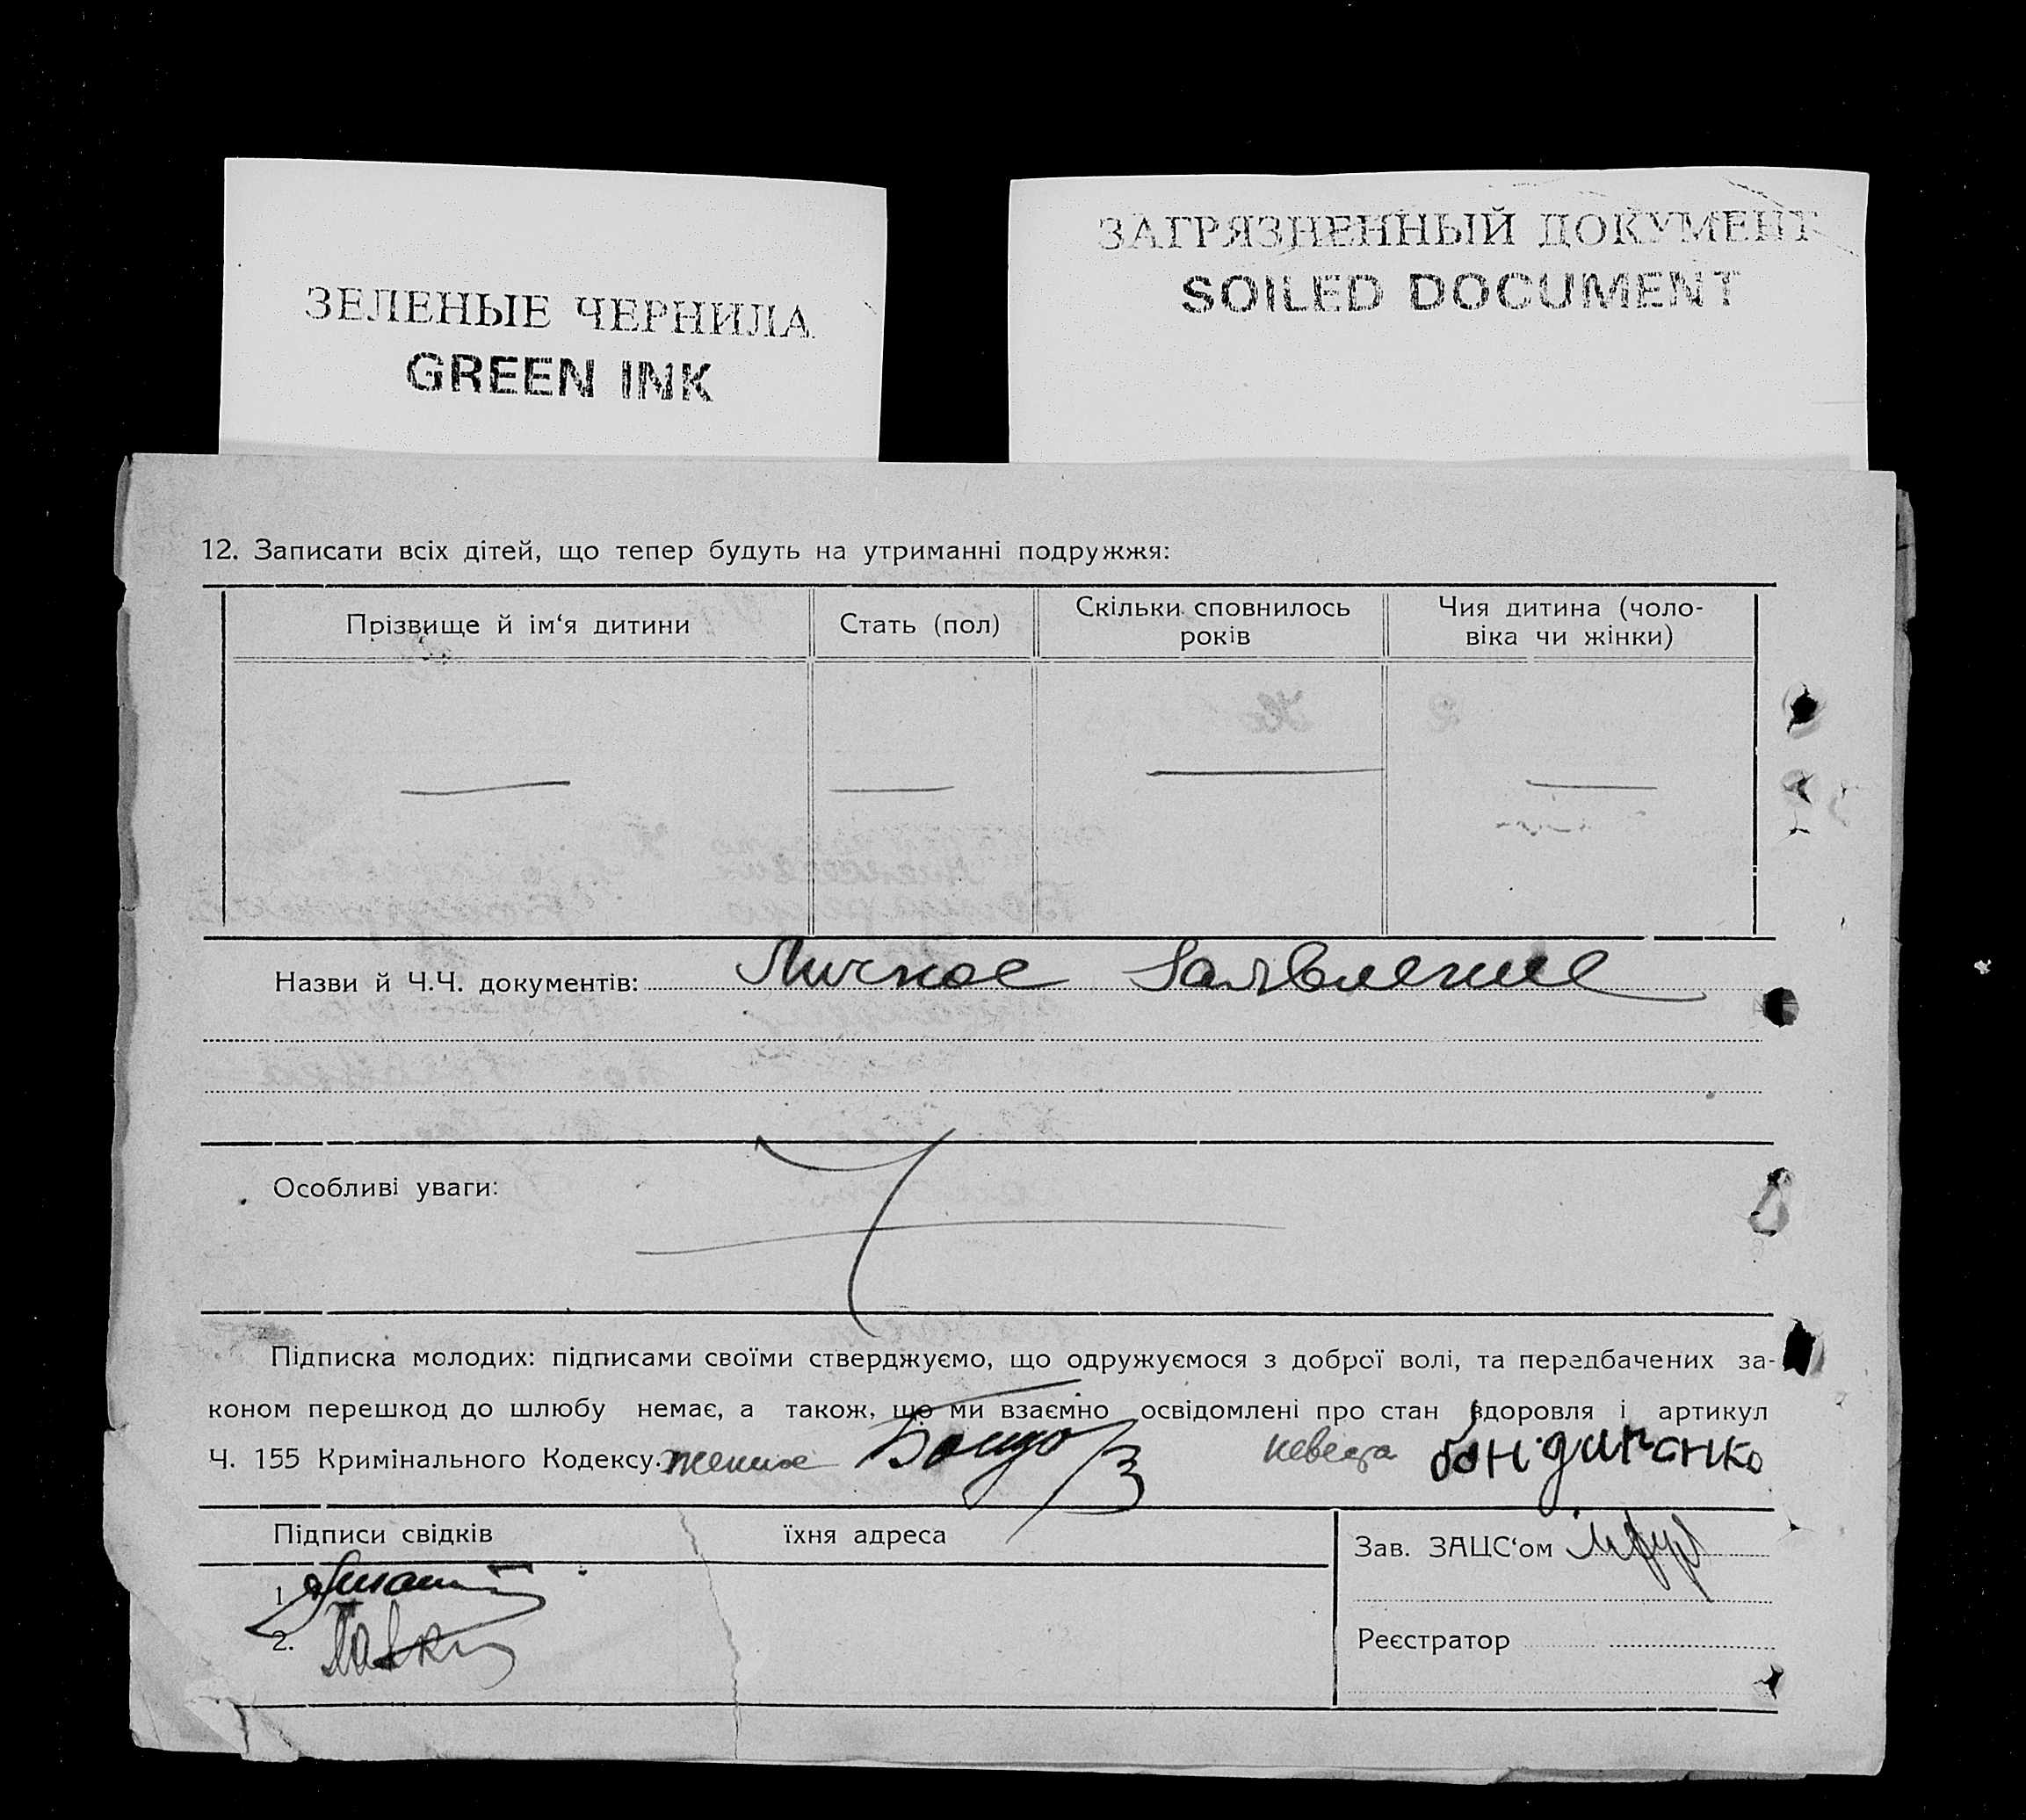 ЗЕЛЕНЫЕ ЧЕРНИЛА
GREEN INK
ЗАГРЯЗНЕННЫЙ ДОКУМЕНТ
SOILED DOCUMENT
12. Записати всіх дітей, що тепер будуть на утриманні подружжя:
Прізвище й ім‘я дитини
Стать (пол)
Скільки сповнилось
років
Чия дитина (чоло-
віка чи жінки)
Назви й Ч.Ч. документів: Личное Заявление
Особливі уваги:
Підписка молодих: підписами своїми стверджуємо, що одружуємося з доброї волі, та передбачених за-
коном перешкод до шлюбу немає, а також, що ми взаємно освідомлені про стан здоровля і артикул
Ч. 155 Кримінального Кодексу. жених невеста
Підписи свідків
їхня адреса
Зав. ЗАЦС‘ом
1.
2.
Реєстратор